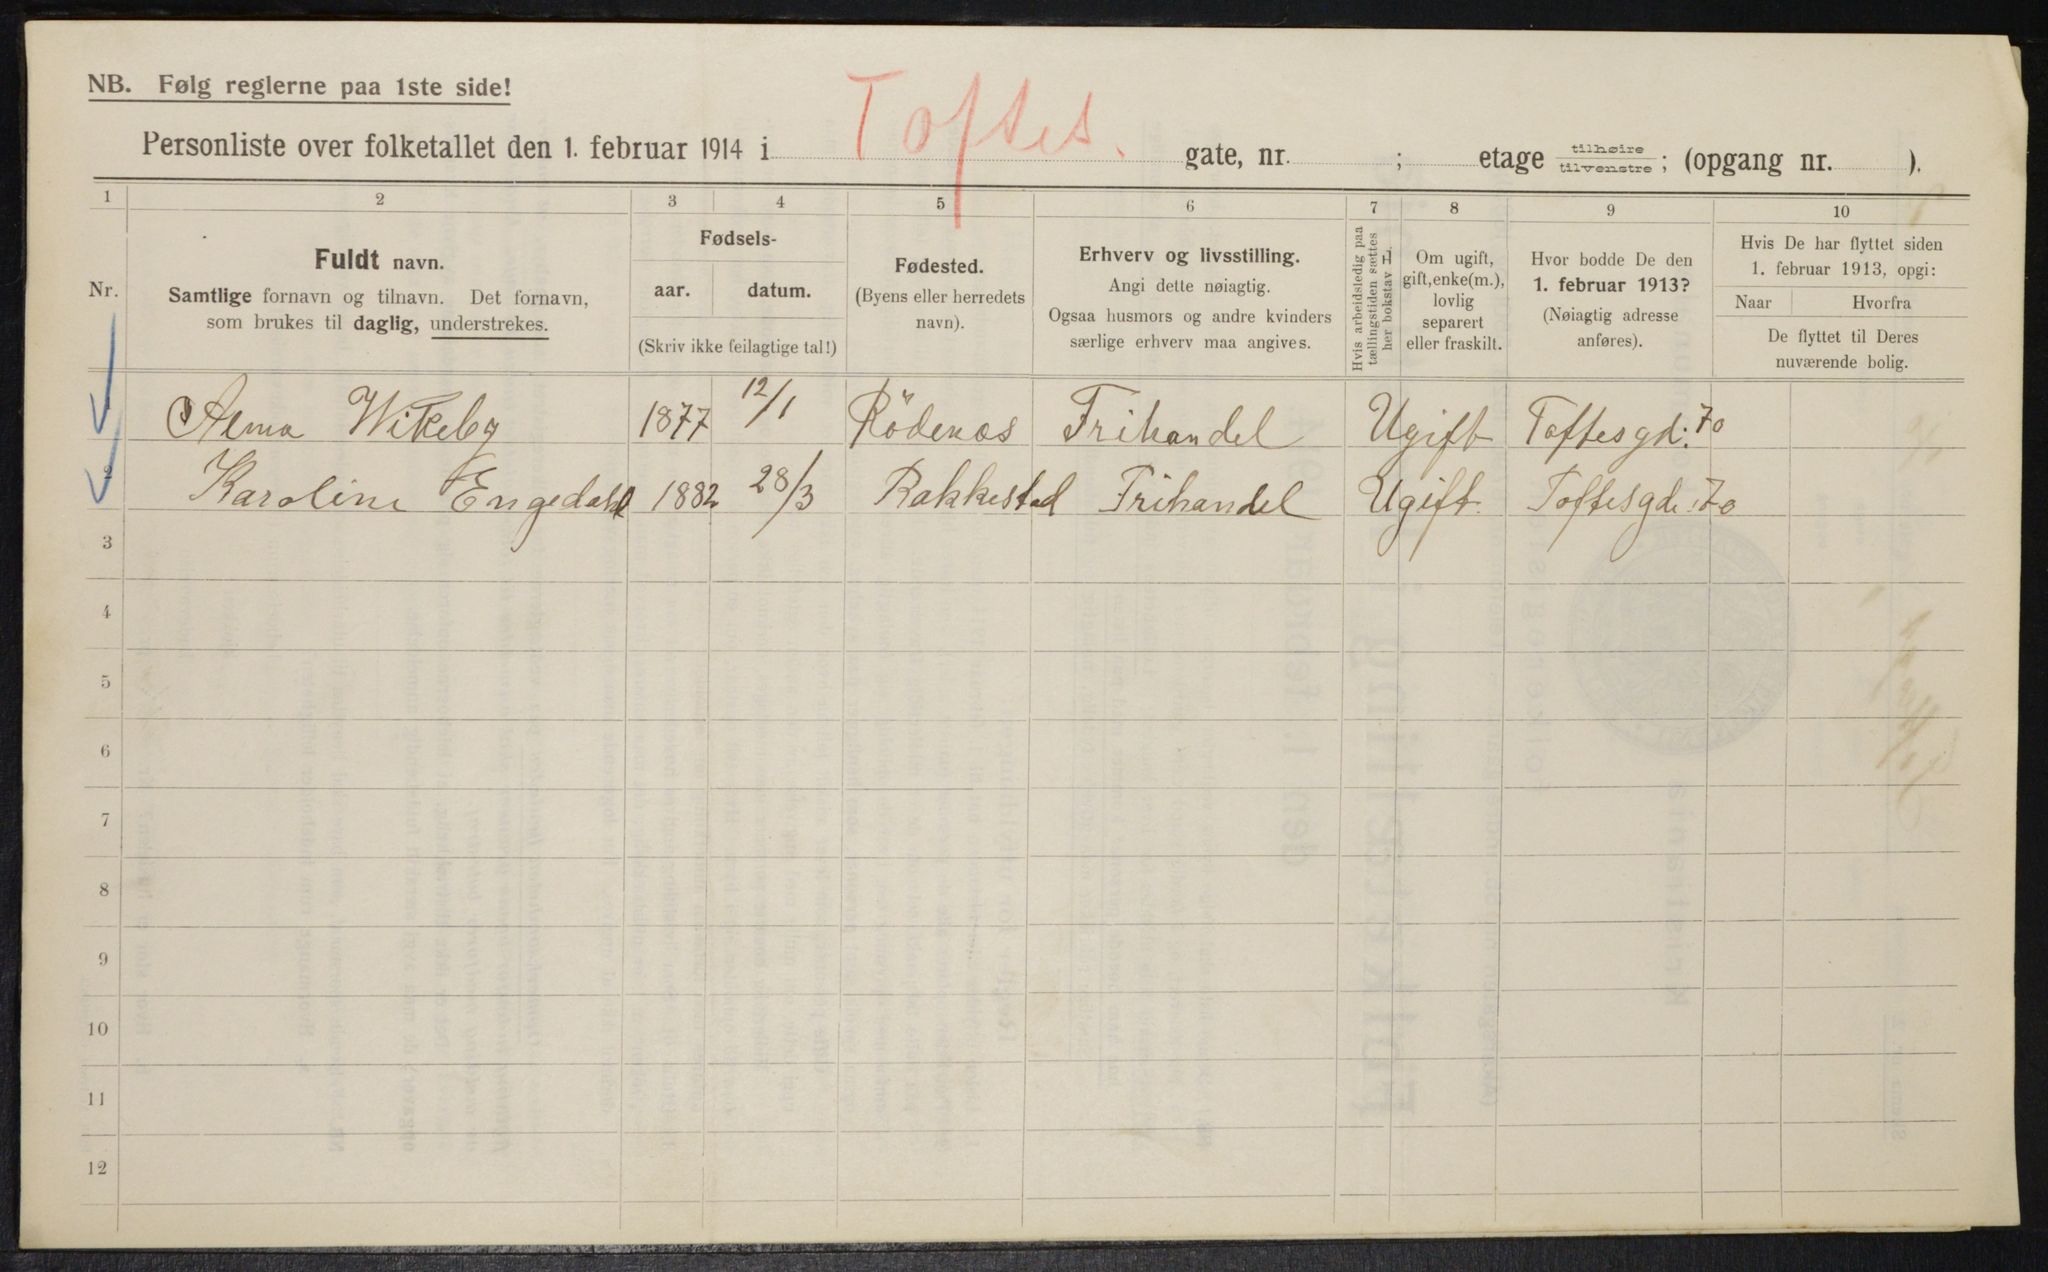 NB. Følg reglerne paa 1ste side!
Personliste over folketallet den 1. februar 1914 i Toftes. gate, nr. ; etage tilhøire/tilvenstre; (opgang nr. ).
1 2 3 4 5 6 7 8 9 10
Nr.
Fuldt navn.
Samtlige fornavn og tilnavn. Det fornavn,
som brukes til daglig, understrekes.
Fødsels-
aar. datum.
(Skriv ikke feilagtige tal!)
Fødested.
(Byens eller herredets
navn).
Erhverv og livsstilling.
Angi dette nøiagtig.
Ogsaa husmors og andre kvinders
særlige erhverv maa angives.
Hvis arbeidsledig paa
tællingstiden sættes
her bokstav L.
Om ugift,
gift, enke(m.),
lovlig
separert
eller fraskilt.
Hvor bodde De den
1. februar 1913?
(Nøiagtig adresse
anføres).
Hvis De har flyttet siden
1. februar 1913, opgi:
Naar Hvorfra
De flyttet til Deres
nuværende bolig.
1 Alma Wikeby 1877 12/1 Rödenes Frihandel Ugift Toftesgd. 70
2 Karoline Engedahl 1882 28/3 Rakkestad Frihandel Ugift Toftesgde. 70
3
4
5
6
7
8
9
10
11
12